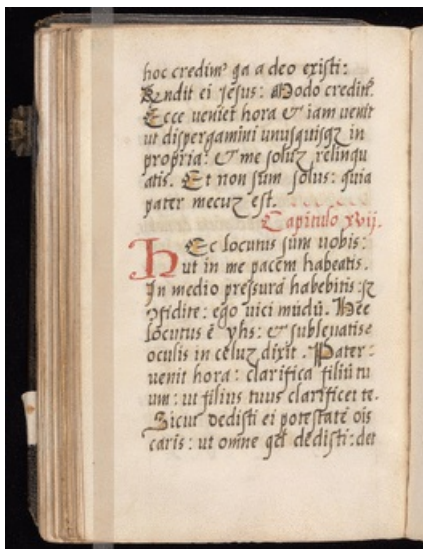 hoc credimꝰ qa a deo existi:
Rͤndit ei Jesus: Modo creditꝭ.
Ecce veniet hora & iam venit
ut dispergamini unusquisqꝫ in
propria: & me soluꝫ relinqu
atis. Et non sum solus: quia
pater mecuꝫ est.
Capitulo xvij.
hEc locutus sum uobis:
ut in me pacem habeatis.
In medio pressurā habebitis: sꝫ
ꝯfidite: ego uici mūdū. Hee
locutus ē yhs: & subleuatis e
oculis in celuꝫ dixit. Pater:
venit hora: clarifica filiū tu
um: ut filius tuus clarificet te.
Sicut dedisti ei potestatē ois
caris: ut omne qd dedisti: det